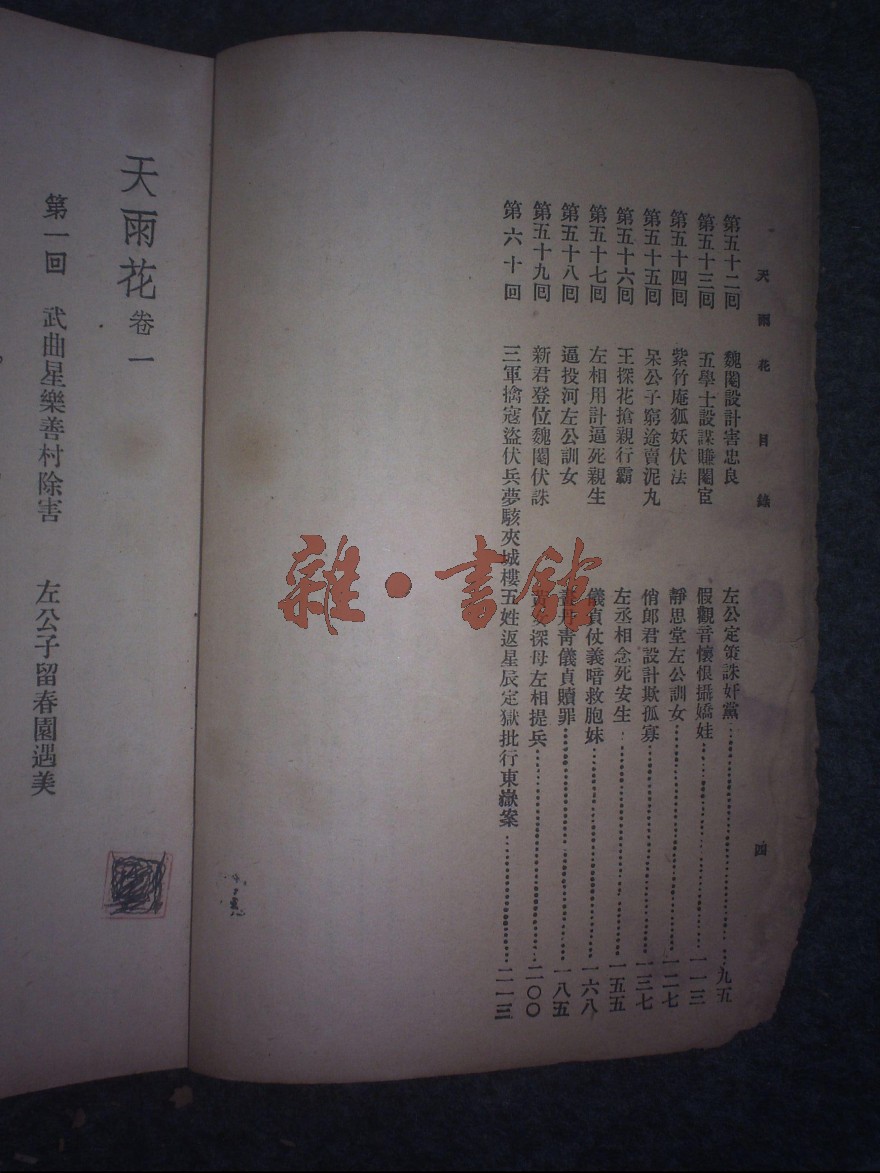 天雨花目錄 四
第五十二囘 魏閹設計害忠良 左公定策誅奸黨 九五
第五十三囘 五學士設謀賺閹宦 假觀音懷恨攝嬌娃 一一三
第五十四囘 紫竹庵狐妖伏法 靜思堂左公訓女 一二七
第五十五囘 呆公子窮途賣泥丸 俏郎君設計欺孤寡 一三七
第五十六囘 王探花搶親行霸 左丞相念死安生 一五五
第五十七囘 左相用計逼死親生 儀貞仗義暗救胞妹 一六八
第五十八囘 逼投河左公訓女 畫丹青儀貞贖罪 一八五
第五十九囘 新君登位魏閹伏誅 探母左相提兵 二〇〇
第六十囘 三軍擒寇盜伏兵夢駭夾城樓五姓返星辰定獄批行東嶽案 二一三
天雨花 卷一
第一回 武曲星樂善村除害 左公子留春園遇美
雜·書館